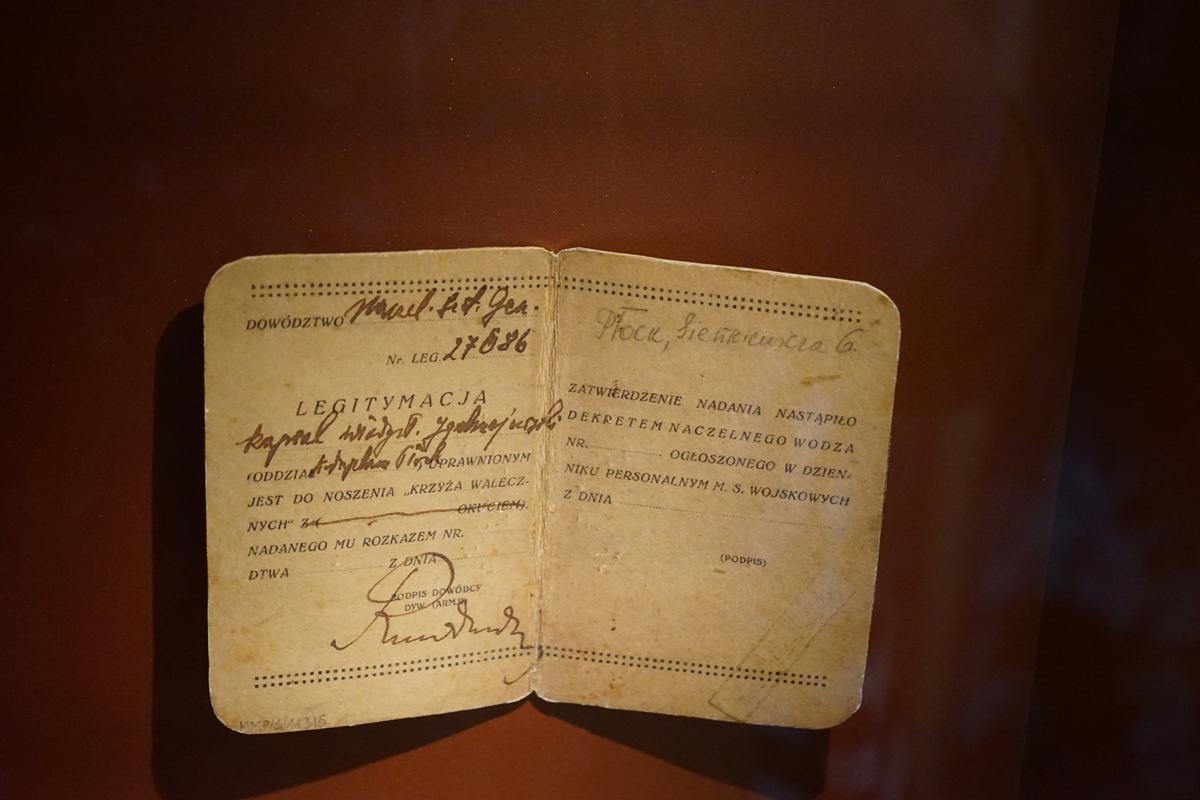 DOWÓDZTWO
Nr. LEG.
LEGITYMACJA
kapral
(ODDZIAŁ UPRAWNIONYM
JEST DO NOSZENIA „KRZYŻA WALECZ-
NYCH" Z ( OKUCIEM).
NADANEGO MU ROZKAZEM NR.
DTWA Z DNIA
PODPIS DOWÓDCY
DYW. (ARMJI)
MMP/S/11315
Płock, Sienkiewicza 6.
ZATWIERDZENIE NADANIA NASTĄPIŁO
DEKRETEM NACZELNEGO WODZA
NR. OGŁOSZONEGO W DZIEN-
NIKU PERSONALNYM M. S. WOJSKOWYCH
Z DNIA
(PODPIS)